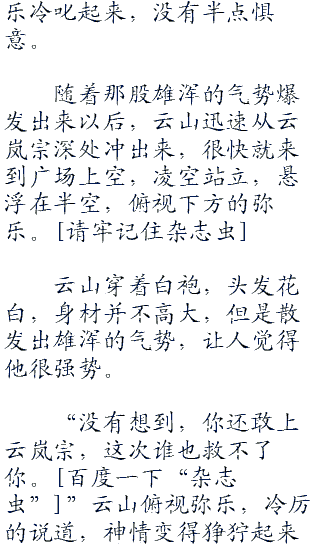 乐冷叱起来，没有半点惧
意。
随着那股雄浑的气势爆
发出来以后，云山迅速从云
岚宗深处冲出来，很快就来
到广场上空，凌空站立，悬
浮在半空，俯视下方的弥
乐。[请牢记住杂志虫]
云山穿着白袍，头发花
白，身材并不高大，但是散
发出雄浑的气势，让人觉得
他很强势。
“没有想到，你还敢上
云岚宗，这次谁也救不了
你。[百度一下“杂志
虫”]”云山俯视弥乐，冷厉
的说道，神情变得狰狞起来